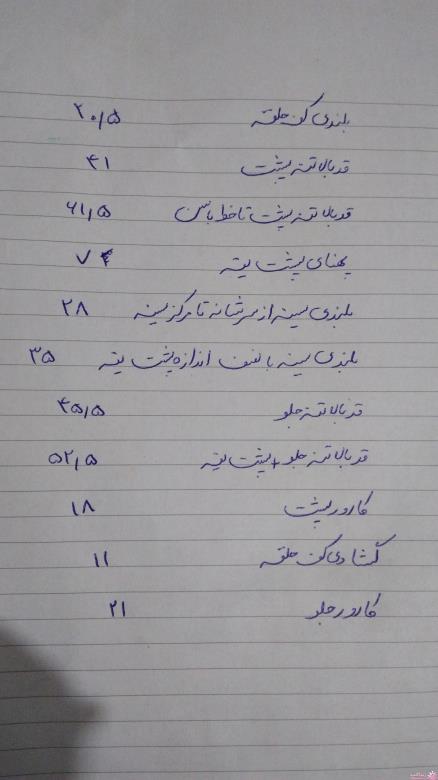 بلندی کف حلقه ۲۰/۵
قد بالاتنه پشت ۴۱
قد بالاتنه پشت تا خط باسن ۶۱/۵
پهنای پشت یقه ۷
بلندی سینه از سرشانه تا مرکز سینه ۲۸
بلندی سینه با نصف اندازه پشت یقه ۳۵
قد بالاتنه جلو ۴۵/۵
قد بالاتنه جلو + پشت یقه ۵۲/۵
کارور پشت ۱۸
گشادی کف حلقه ۱۱
کارور جلو ۲۱